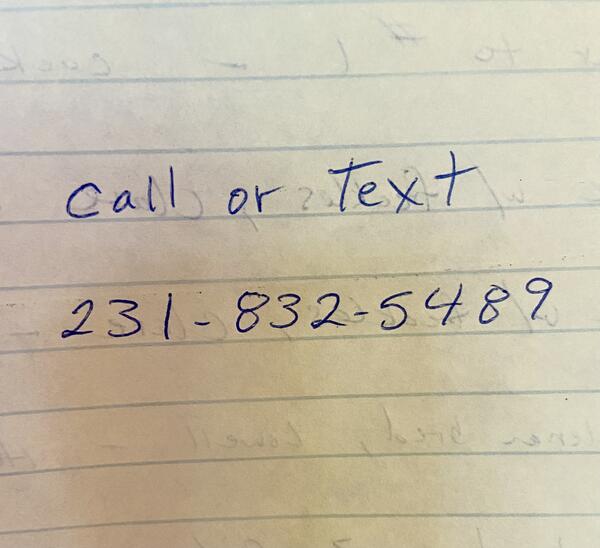 call or Text
231-832-5489